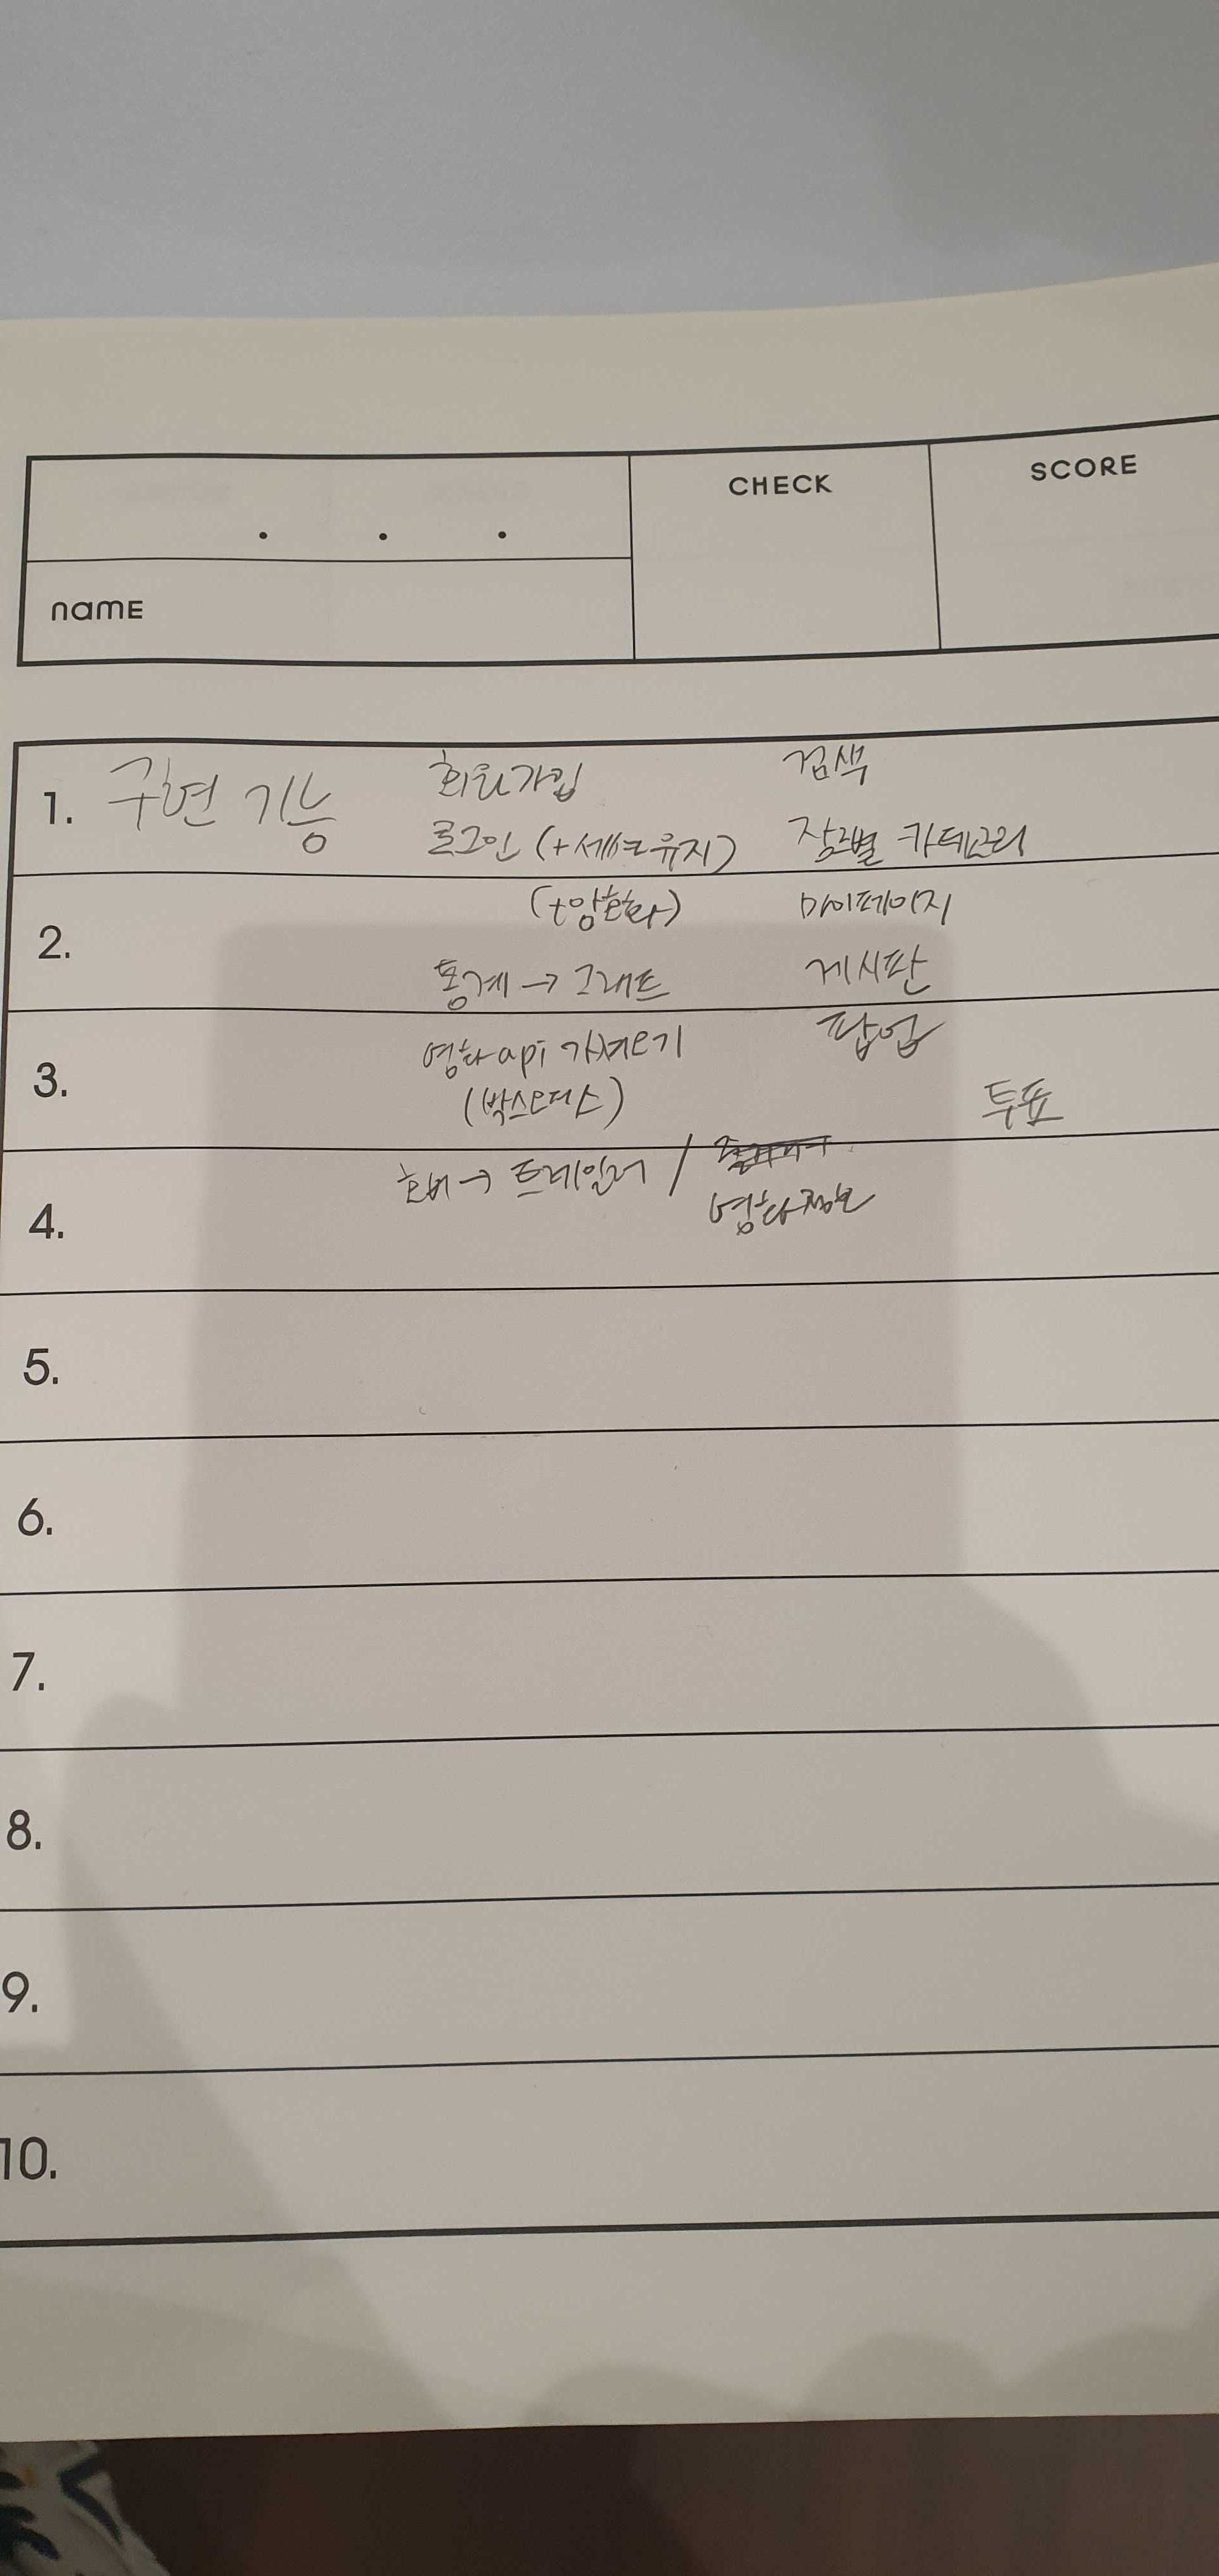 CHECK
SCORE
. . .
name
1. 구현 기능
회원가입
검색
로그인 (+세션유지)
장르별 카테고리
2.
(+암호화)
마이페이지
통계 → 그래프
게시판
3.
영화 api 가져오기
팝업
(박스오피스)
투표
4.
호버 → 트레일러 /
영화정보
5.
6.
7.
8.
9.
10.